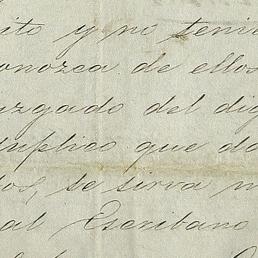 ito y no teni
onozca de ellos
uzgado del dig
suplico que da
os, se sirva n
al Escribano